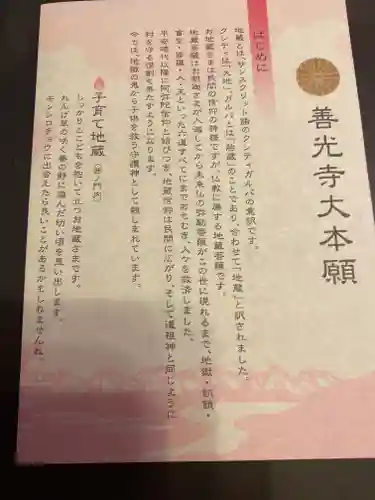 善光寺大本願
はじめに
地蔵とは、サンスクリット語のクシティガルバの意訳です。
クシティは「大地」、ガルバとは「胎蔵」のことであり、合わせて「地蔵」と訳されました。
お地蔵さまは民間の信仰の神様ですが、仏教に属する地蔵菩薩です。
地蔵菩薩はお釈迦さまが入滅してから未来仏の弥勒菩薩がこの世に現れるまで、地獄・餓鬼・
畜生・修羅・人・天といった六道すべてにまで赴き、人々を救済しました。
平安時代以降に阿弥陀信仰と結びつき、地蔵信仰は民間に広がり、そして道祖神と同じように
村を守る役割を果たすようになります。
今では地獄の鬼から子供を救う守護神として親しまれています。
子育て地蔵
しっかりとこどもを抱いて立つお地蔵さまです。
れんげ草の咲く春の野に遊んだ幼い頃を思い出します。
モンシロチョウに出会えたら良いことがあるかもしれませんね。